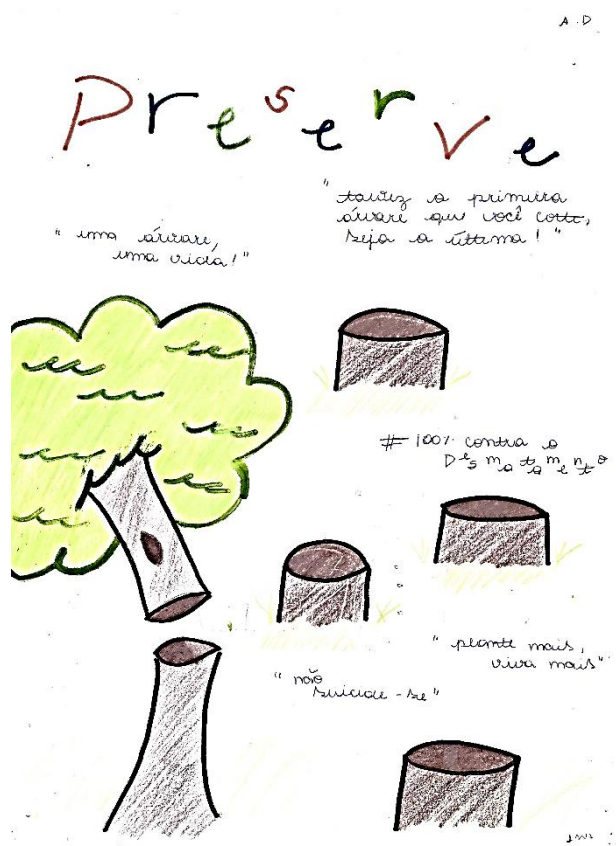 A.D
Preserve
"talvez a primeira
árvore que você corte,
seja a última!"
"uma árvore,
uma vida!"
# 100% contra o
Desmatamento
"plante mais,
viva mais"
"não
suicide-se"